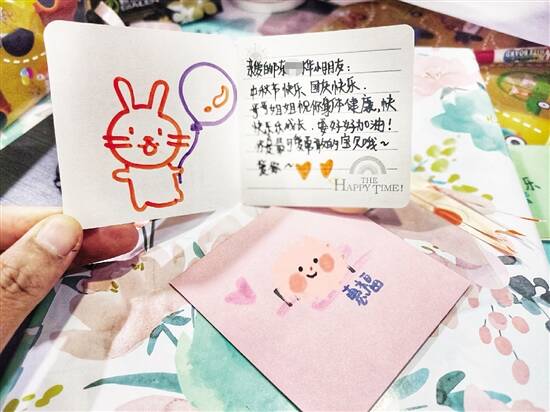 亲爱的陈 烨小朋友：
中秋节快乐 国庆快乐.
哥哥姐姐祝你身体健康,快
快乐乐成长. 要好好加油!
你是最可爱勇敢的宝贝哦~
爱你~
THE
HAPPY TIME!
祝福
乐